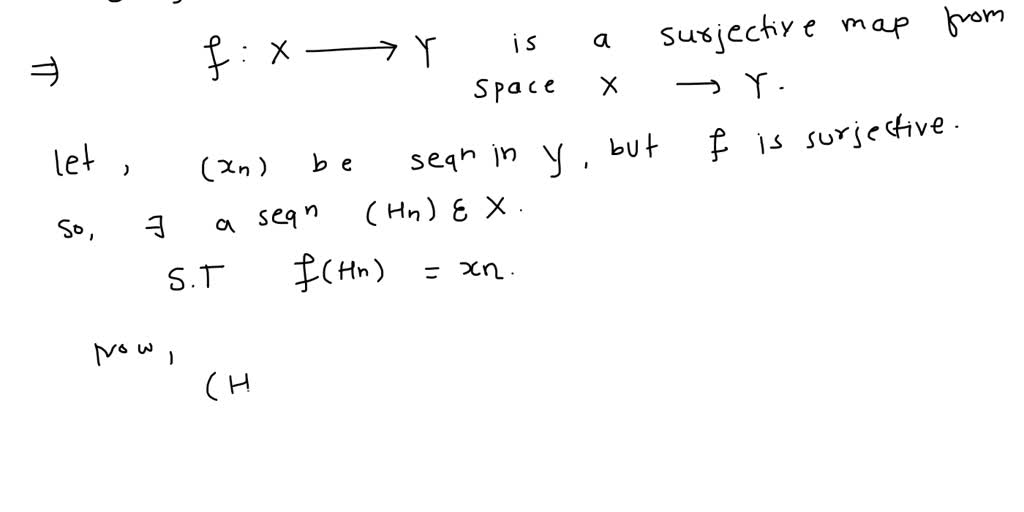 ⇒ f : X ⟶ Y is a surjective map from
space X → Y.
let, (xn) be seqn in y, but f is surjective.
So, ∃ a seqn (Hn) ε X.
S.T f(Hn) = xn.
Now,
(H